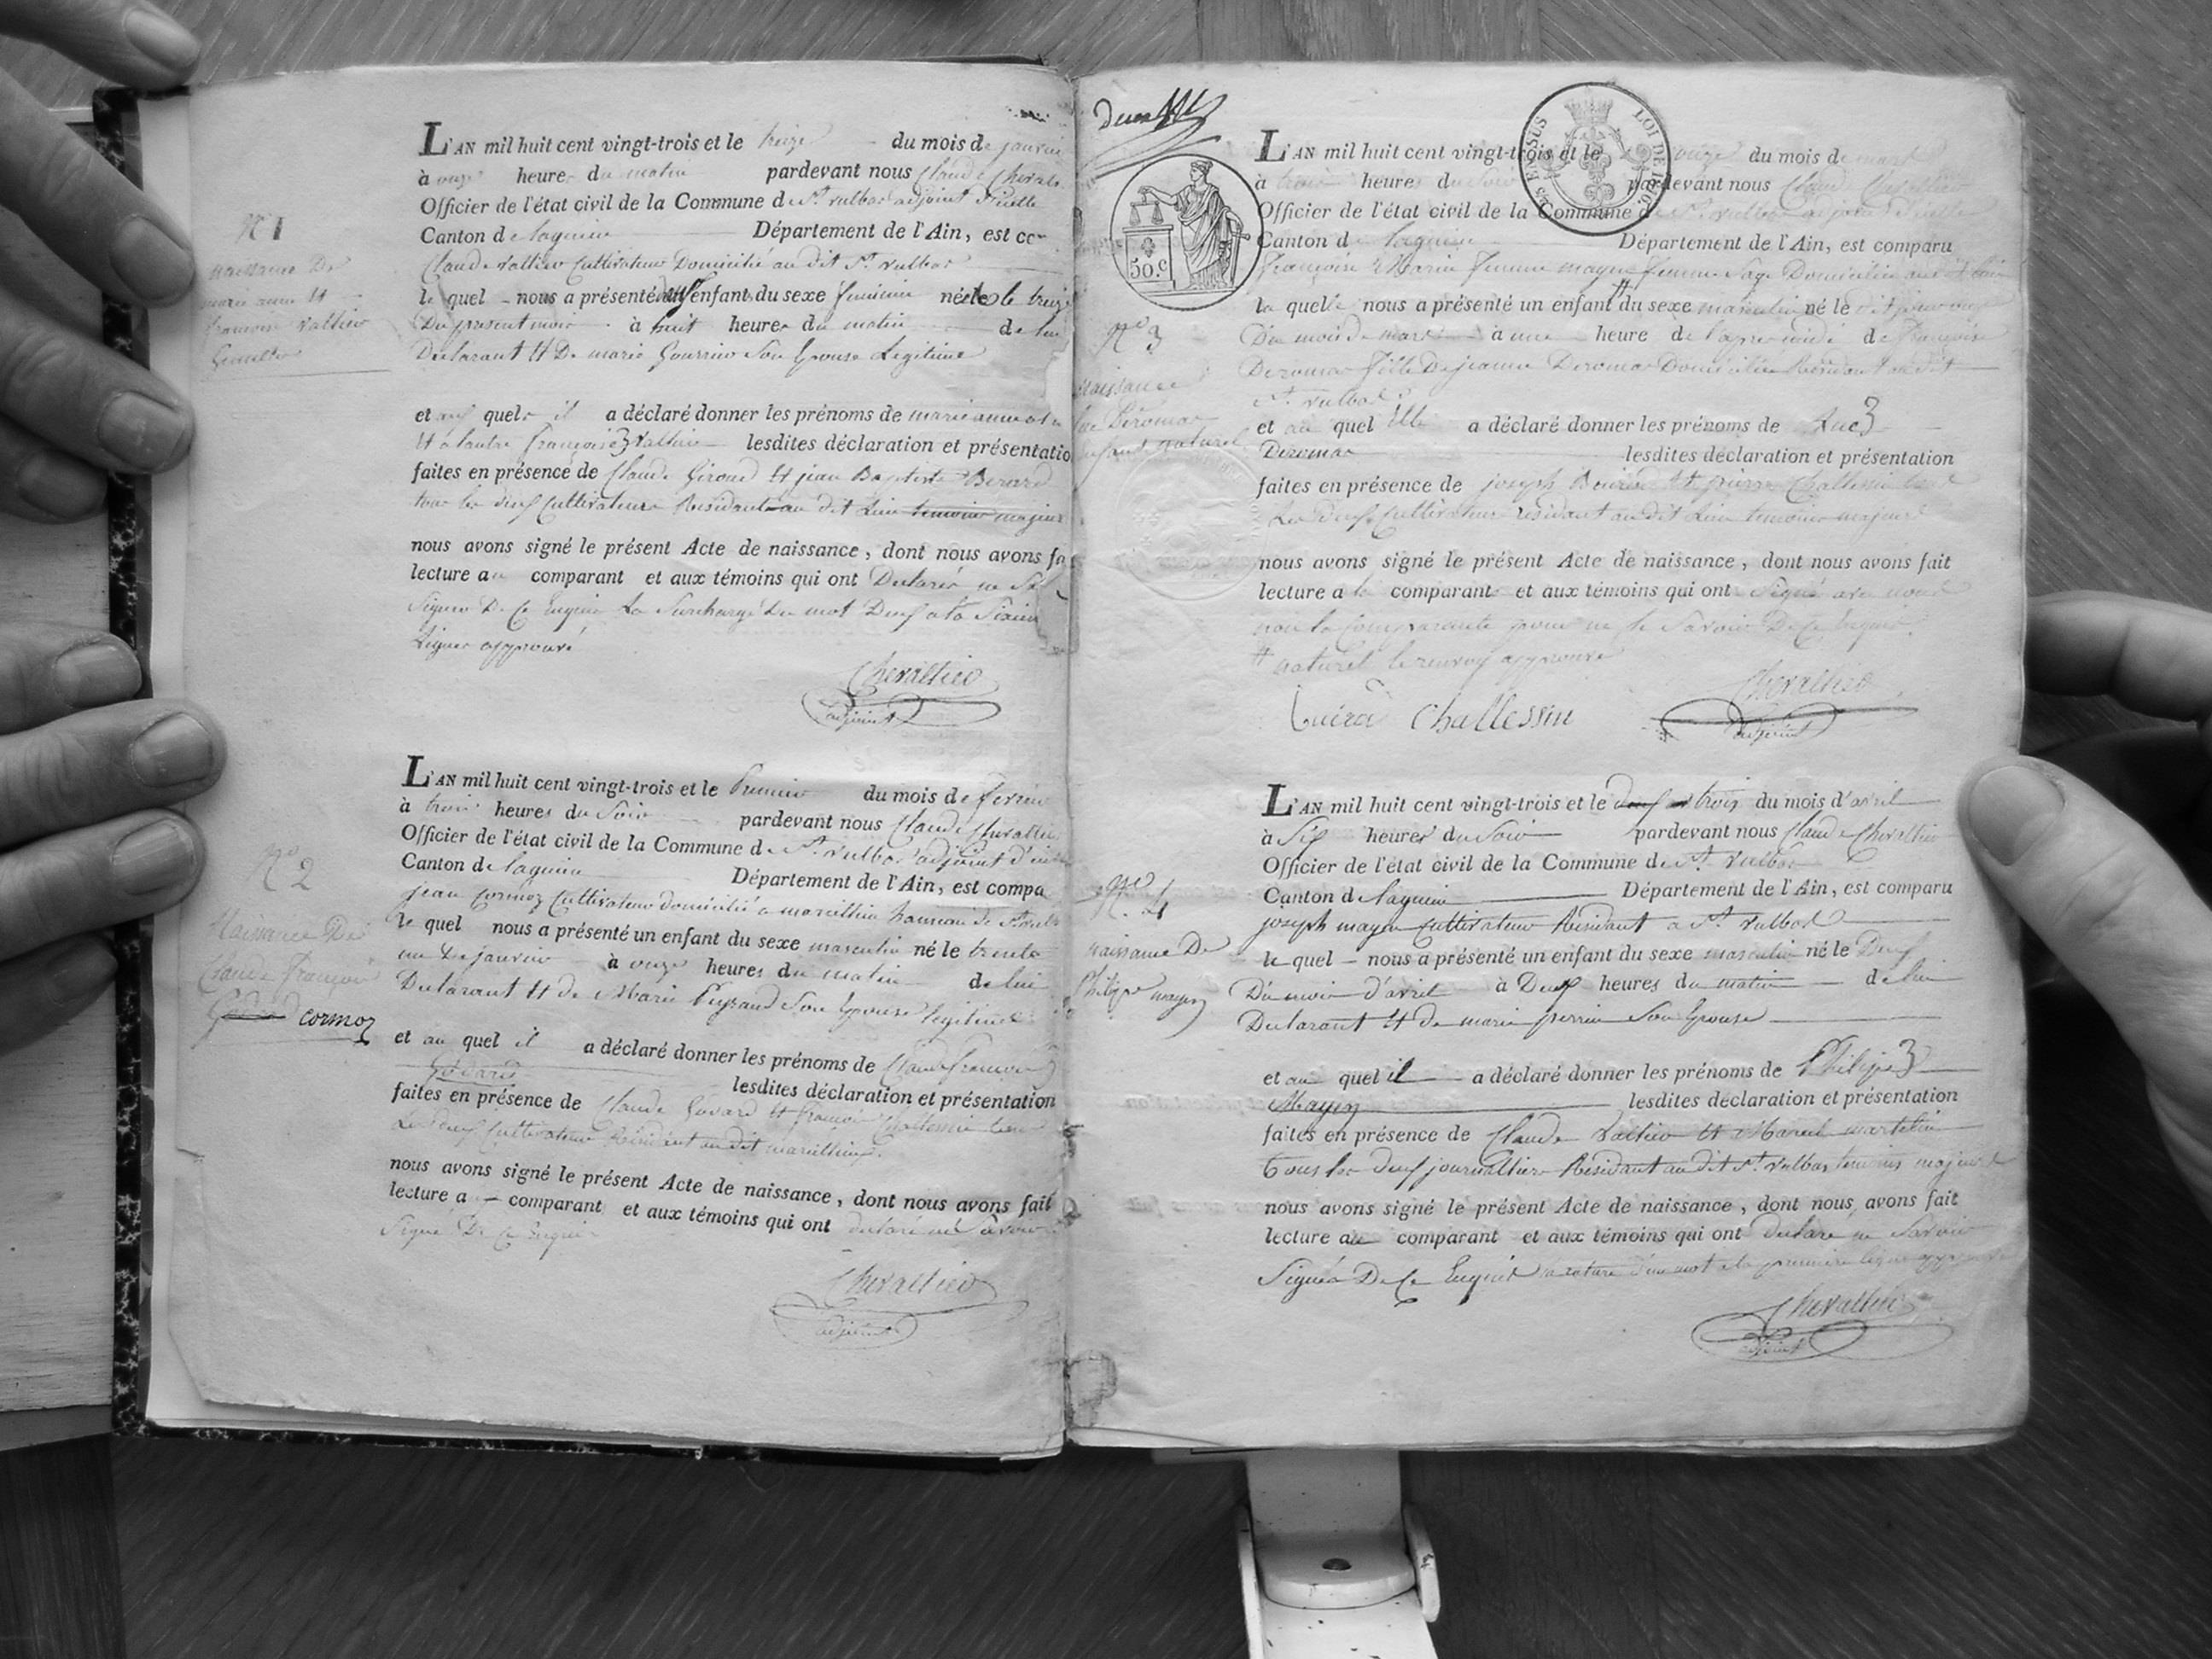 N° 1
naissance De
marie anne et
françoise Vallier
Gemelles
L'AN mil huit cent vingt-trois et le treize du mois de janvier
à onze heures du matin pardevant nous Claude Cheval
Officier de l'état civil de la Commune de St. Vulbas adjoint
Canton de lagnieu Département de l'Ain, est co
Claude Vallier Cultivateur Domicilié au dit St. Vulbas
le quel nous a présenté deux enfants du sexe féminin née le treize
Du present mois à huit heures du matin de lui
Declarant et De marie Son Epouse Legitime
et aux quels il a déclaré donner les prénoms de marie anne
et a lautre françoise Vallier lesdites déclaration et présentatio
faites en présence de Claude Giroud et jean Baptiste Berard
tous les deux Cultivateurs Residants au dit Lieu temoins majeurs
nous avons signé le présent Acte de naissance, dont nous avons fa
lecture au comparant et aux témoins qui ont Declarés ne
Signer De Ce Enquis La Surcharge Du mot Deux a la Sixieme
Ligne approuvé
Chevallier
adjoint
N° 2
Naissance De
Claude françois
cormoz
L'AN mil huit cent vingt-trois et le Premier du mois de fevrier
à trois heures du Soir pardevant nous Claude Chevallier
Officier de l'état civil de la Commune de St. Vulbas adjoint
Canton de lagnieu Département de l'Ain, est compa
jean cormoz Cultivateur domicilié a marcillieu hameau de St. Vulbas
le quel nous a présenté un enfant du sexe masculin né le trente
un De janvier à onze heures du matin de lui
Declarant et de Marie Peyzaud Son Epouse legitime
et au quel il a déclaré donner les prénoms de Claude françois
lesdites déclaration et présentation
faites en présence de Claude et françois Challessin tous
Les deux Cultivateurs Résidant au dit marcillieux
nous avons signé le présent Acte de naissance, dont nous avons fait
lecture a comparant et aux témoins qui ont declaré ne Savoir
Signé De Ce Enquis
Chevallier
adjoint
deux
50.C
LOI DE 1816
EN SUS
N° 3
naissance
Deromas
enfant naturel
L'AN mil huit cent vingt-trois et le onze du mois de mars
à trois heures du Soir pardevant nous Claude Chevallier
Officier de l'état civil de la Commune de St. Vulbas adjoint
Canton de lagnieu Département de l'Ain, est comparu
françoise Marin femme mayer femme Sage Domiciliée
la quelle nous a présenté un enfant # du sexe masculin né le dit jour onze
Du mois de mars à une heure de l'apres midi de françoise
Deromas fille De jeanne Deromas Domiciliée Residant au dit
St. Vulbas
et au quel Elle a déclaré donner les prénoms de Luc
Deromas lesdites déclaration et présentation
faites en présence de joseph et pierre Challessin tous
Les deux Cultivateurs résidant au dit Lieu temoins majeurs
nous avons signé le présent Acte de naissance, dont nous avons fait
lecture a la comparante et aux témoins qui ont Signé avec nous
non la Comparante pour ne le Savoir De Ce Enquis
# naturel le renvoy approuvé
Challessin
Chevallier
adjoint
N° 4
naissance De
Philippe mayer
L'AN mil huit cent vingt-trois et le trois du mois d'avril
à Six heures du Soir pardevant nous Claude Chevallier
Officier de l'état civil de la Commune de St. Vulbas
Canton de lagnieu Département de l'Ain, est comparu
joseph mayer Cultivateur Résidant a St. Vulbas
le quel nous a présenté un enfant du sexe masculin né le Deux
Du mois d'avril à Deux heures du matin de lui
Declarant et de marie perrin Son Epouse
et au quel il a déclaré donner les prénoms de Philippe
Mayer lesdites déclaration et présentation
faites en présence de Claude Vallier et Marcel martelin
Tous les deux journalliers Résidant au dit St. Vulbas temoins majeurs
nous avons signé le présent Acte de naissance, dont nous avons fait
lecture au comparant et aux témoins qui ont declare ne Savoir
Signer De Ce Enquis la rature d'un mot a la premiere ligne approuvé
Chevallier
adjoint